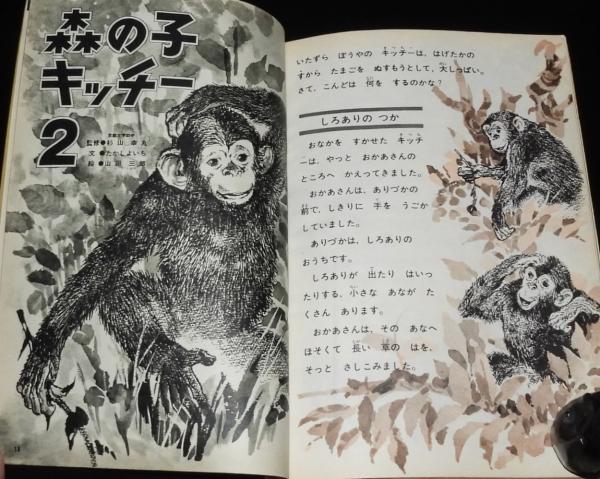 森の子
キッチー
2
京都大学助手
監修●杉山幸丸
文●たかしよいち
絵●山田三郎
いたずら ぼうやの キッチーは、はげたかの
すから たまごを ぬすもうとして、大しっぱい。
さて、こんどは 何を するのかな?
しろありの つか
おなかを すかせた キッチ
ーは、やっと おかあさんの
ところへ かえってきました。
おかあさんは、ありづかの
前で、しきりに 手を うごか
していました。
ありづかは、しろありの
おうちです。
しろありが 出たり はいっ
たりする、小さな あなが た
くさん あります。
おかあさんは、その あなへ
ほそくて 長い 草の はを、
そっと さしこみました。
18